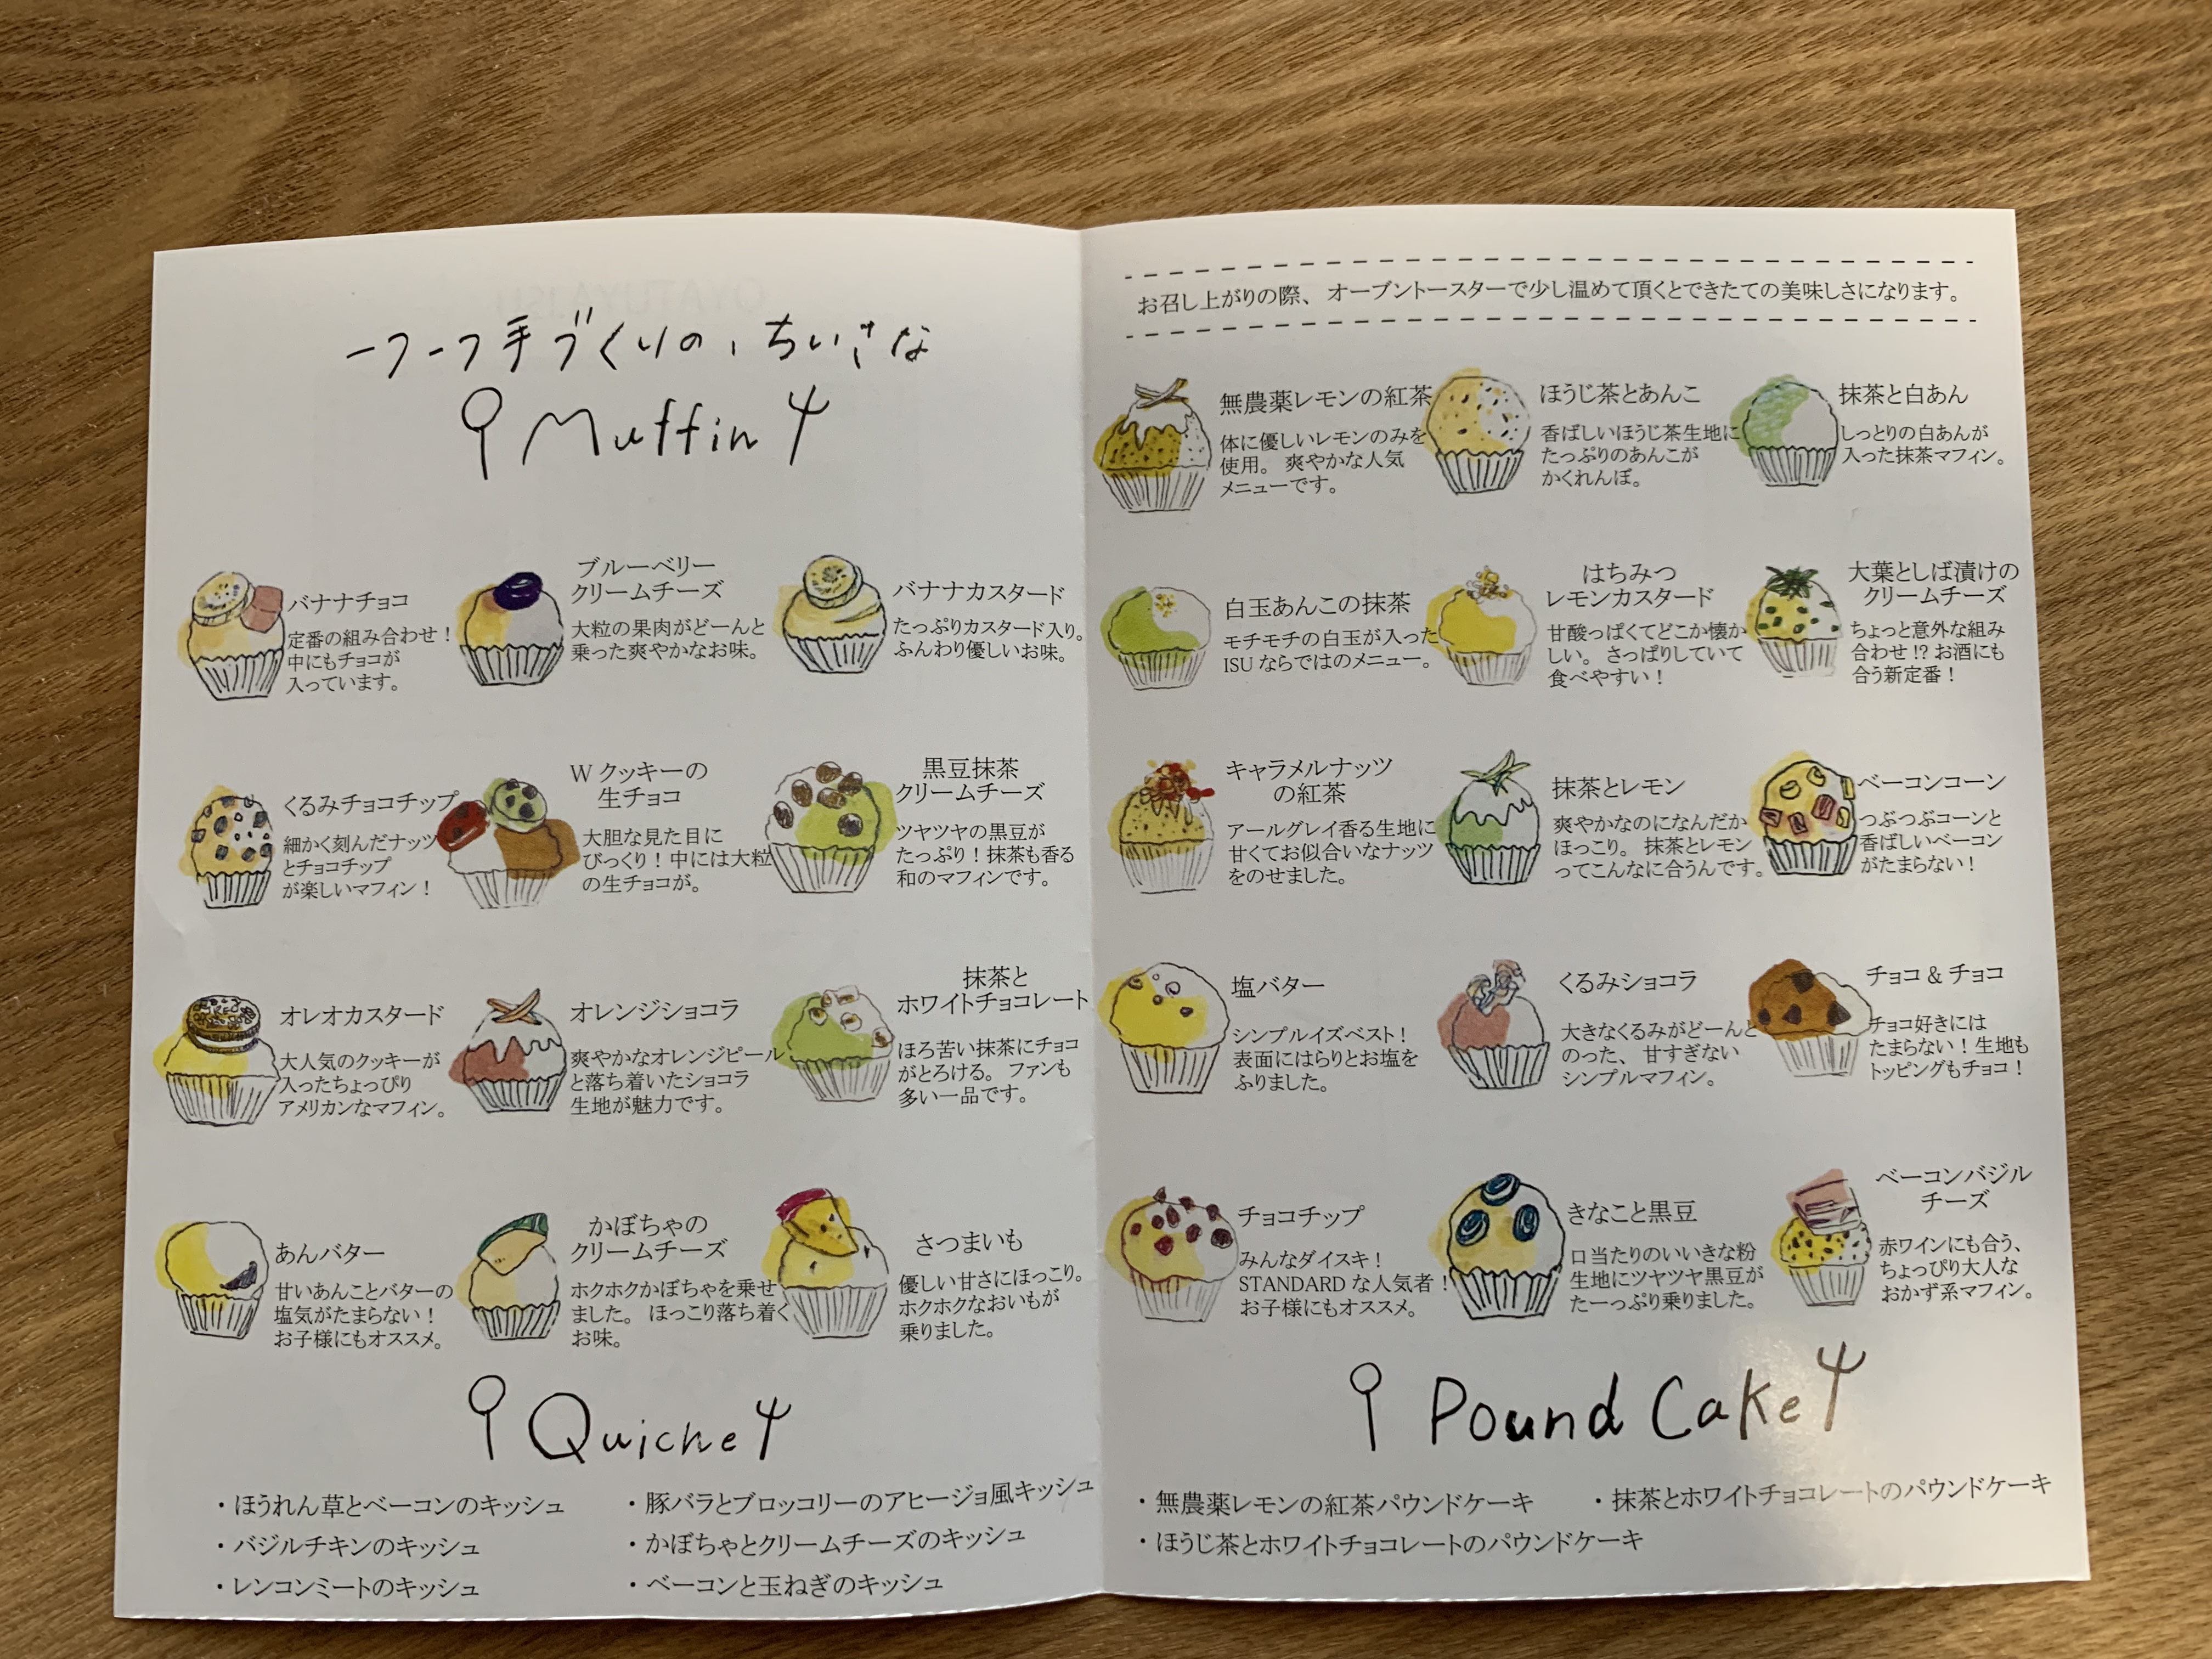 一つ一つ手づくりの、ちいさな
Muffin
バナナチョコ
定番の組み合わせ！
中にもチョコが
入っています。
ブルーベリー
クリームチーズ
大粒の果肉がどーんと
乗った爽やかなお味。
バナナカスタード
たっぷりカスタード入り。
ふんわり優しいお味。
くるみチョコチップ
細かく刻んだナッツ
とチョコチップ
が楽しいマフィン！
W クッキーの
生チョコ
大胆な見た目に
びっくり！中には大粒
の生チョコが。
黒豆抹茶
クリームチーズ
ツヤツヤの黒豆が
たっぷり！抹茶も香る
和のマフィンです。
オレオカスタード
大人気のクッキーが
入ったちょっぴり
アメリカンなマフィン。
オレンジショコラ
爽やかなオレンジピール
と落ち着いたショコラ
生地が魅力です。
抹茶と
ホワイトチョコレート
ほろ苦い抹茶にチョコ
がとろける。ファンも
多い一品です。
あんバター
甘いあんことバターの
塩気がたまらない！
お子様にもオススメ。
かぼちゃの
クリームチーズ
ホクホクかぼちゃを乗せ
ました。ほっこり落ち着く
お味。
さつまいも
優しい甘さにほっこり。
ホクホクなおいもが
乗りました。
Quiche
・ほうれん草とベーコンのキッシュ
・バジルチキンのキッシュ
・レンコンミートのキッシュ
・豚バラとブロッコリーのアヒージョ風キッシュ
・かぼちゃとクリームチーズのキッシュ
・ベーコンと玉ねぎのキッシュ
お召し上がりの際、オーブントースターで少し温めて頂くとできたての美味しさになります。
無農薬レモンの紅茶
体に優しいレモンのみを
使用。爽やかな人気
メニューです。
ほうじ茶とあんこ
香ばしいほうじ茶生地に
たっぷりのあんこが
かくれんぼ。
抹茶と白あん
しっとりの白あんが
入った抹茶マフィン。
白玉あんこの抹茶
モチモチの白玉が入った
ISU ならではのメニュー。
はちみつ
レモンカスタード
甘酸っぱくてどこか懐か
しい。さっぱりしていて
食べやすい！
大葉としば漬けの
クリームチーズ
ちょっと意外な組み
合わせ!? お酒にも
合う新定番！
キャラメルナッツ
の紅茶
アールグレイ香る生地に
甘くてお似合いなナッツ
をのせました。
抹茶とレモン
爽やかなのになんだか
ほっこり。抹茶とレモン
ってこんなに合うんです。
ベーコンコーン
つぶつぶコーンと
香ばしいベーコン
がたまらない！
塩バター
シンプルイズベスト！
表面にはらりとお塩を
ふりました。
くるみショコラ
大きなくるみがどーんと
のった、甘すぎない
シンプルマフィン。
チョコ & チョコ
チョコ好きには
たまらない！生地も
トッピングもチョコ！
チョコチップ
みんなダイスキ！
STANDARD な人気者！
お子様にもオススメ。
きなこと黒豆
口当たりのいいきな粉
生地にツヤツヤ黒豆が
たーっぷり乗りました。
ベーコンバジル
チーズ
赤ワインにも合う、
ちょっぴり大人な
おかず系マフィン。
Pound Cake
・無農薬レモンの紅茶パウンドケーキ
・抹茶とホワイトチョコレートのパウンドケーキ
・ほうじ茶とホワイトチョコレートのパウンドケーキ